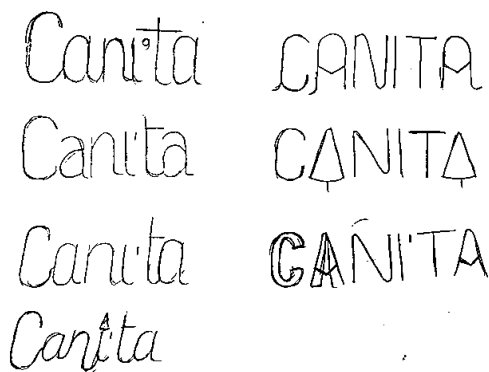 Canita
CANITA
Canita
CANITA
Canita
CAÑITA
Canita